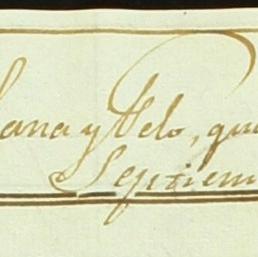 ana y Velo, que
Septiem